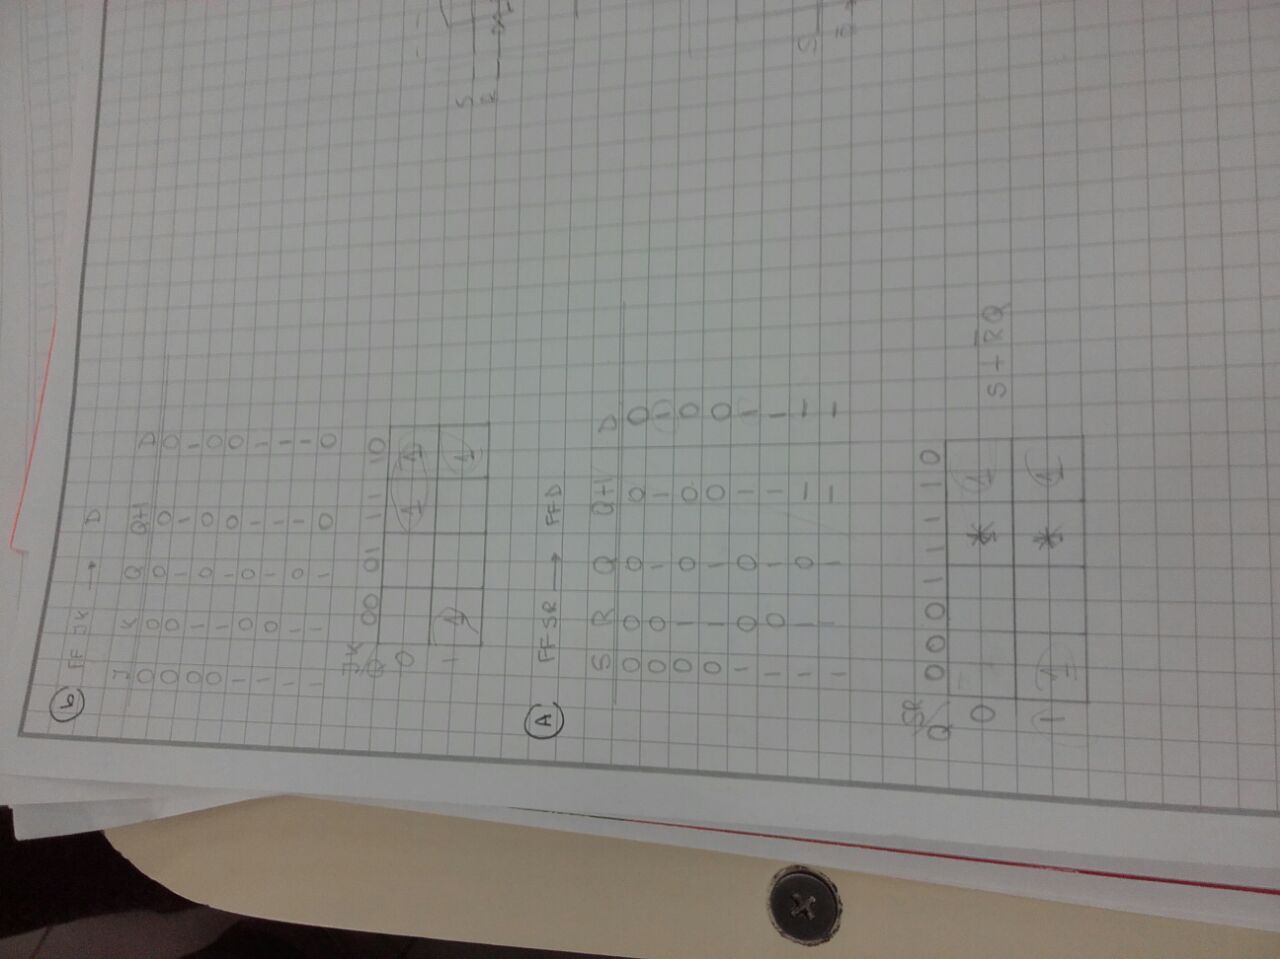 b FF JK → D
J K Q Q+1 D
0 0 0 0 0
0 0 1 1 1
0 1 0 0 0
0 1 1 0 0
1 0 0 1 1
1 0 1 1 1
1 1 0 1 1
1 1 1 0 0
JK
Q 00 01 11 10
0 1 1
1 1 1
S
R
A FFSR → FFD
S R Q Q+1 D
0 0 0 0 0
0 0 1 1 1
0 1 0 0 0
0 1 1 0 0
1 0 0 1 1
1 0 1 1 1
1 1 0 – –
1 1 1 – –
S
SR
Q 00 01 11 10
0 * 1
1 1 * 1
S + R̅Q